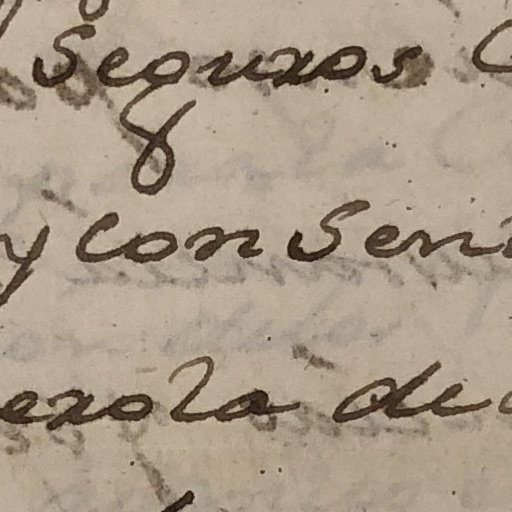 Seguros
y con Sen
exola de